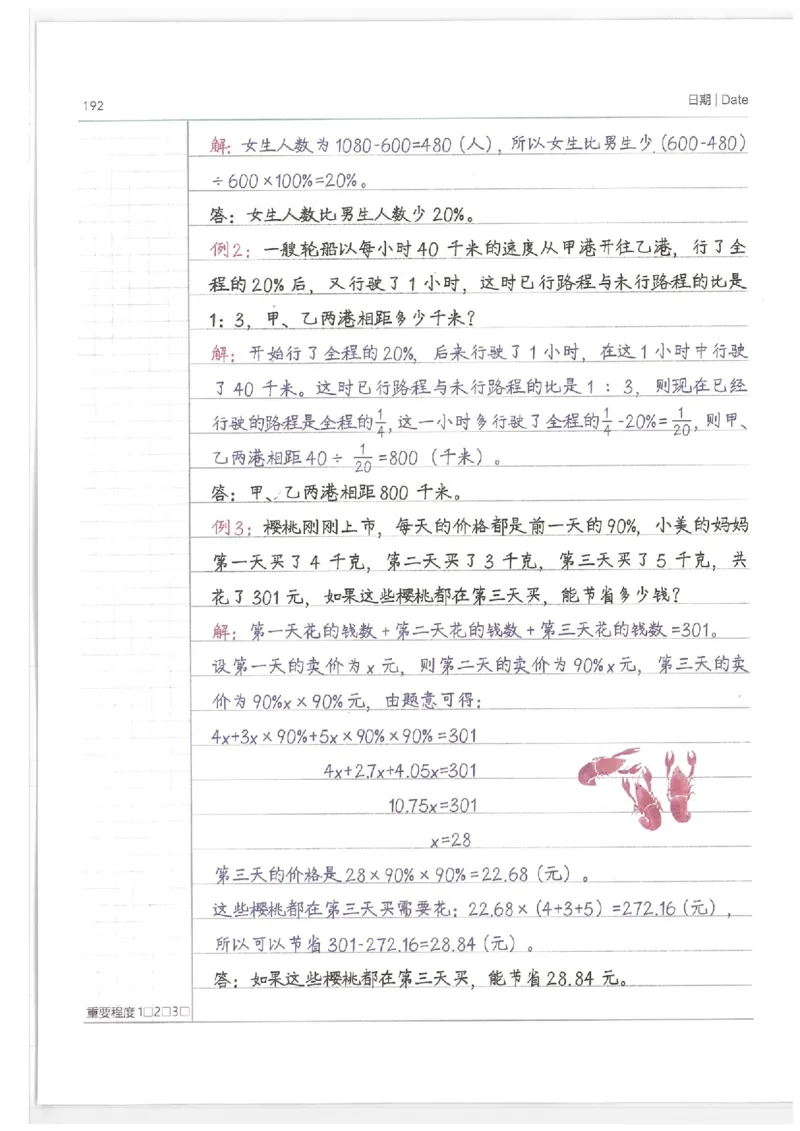 192
日期 | Date
解: 女生人数为1080-600=480 (人), 所以女生比男生少 (600-480)
÷600×100%=20%。
答: 女生人数比男生人数少 20%。
例2: 一艘轮船以每小时 40 千米的速度从甲港开往乙港, 行了全
程的 20% 后, 又行驶了 1 小时, 这时已行路程与未行路程的比是
1: 3, 甲、乙两港相距多少千米?
解: 开始行了全程的 20%, 后来行驶了 1 小时, 在这 1 小时中行驶
了 40 千米。这时已行路程与未行路程的比是 1 : 3, 则现在已经
行驶的路程是全程的1/4, 这一小时多行驶了全程的1/4-20%=1/20, 则甲、
乙两港相距 40÷ 1/20 =800 (千米) 。
答: 甲、乙两港相距 800 千米。
例3: 樱桃刚刚上市, 每天的价格都是前一天的 90%, 小美的妈妈
第一天买了 4 千克, 第二天买了 3 千克, 第三天买了 5 千克, 共
花了 301 元, 如果这些樱桃都在第三天买, 能节省多少钱?
解: 第一天花的钱数 + 第二天花的钱数 + 第三天花的钱数 =301。
设第一天的卖价为 x 元, 则第二天的卖价为 90%x 元, 第三天的卖
价为 90%x×90% 元, 由题意可得:
4x+3x×90%+5x×90%×90%=301
4x+2.7x+4.05x=301
10.75x=301
x=28
第三天的价格是 28×90%×90%=22.68 (元) 。
这些樱桃都在第三天买需要花: 22.68× (4+3+5) =272.16 (元) ,
所以可以节省 301-272.16=28.84 (元) 。
答: 如果这些樱桃都在第三天买, 能节省 28.84 元。
重要程度 1□2□3□